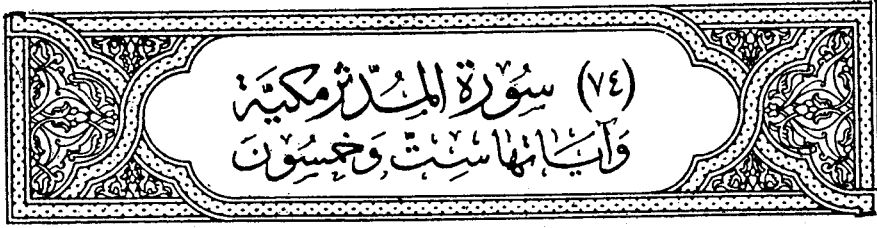 (٧٤) سُوْرَةُ المُدَّثِّرِ مَكِّيَّة
وَآيَاتُهَا سِتٌّ وَخَمْسُونَ